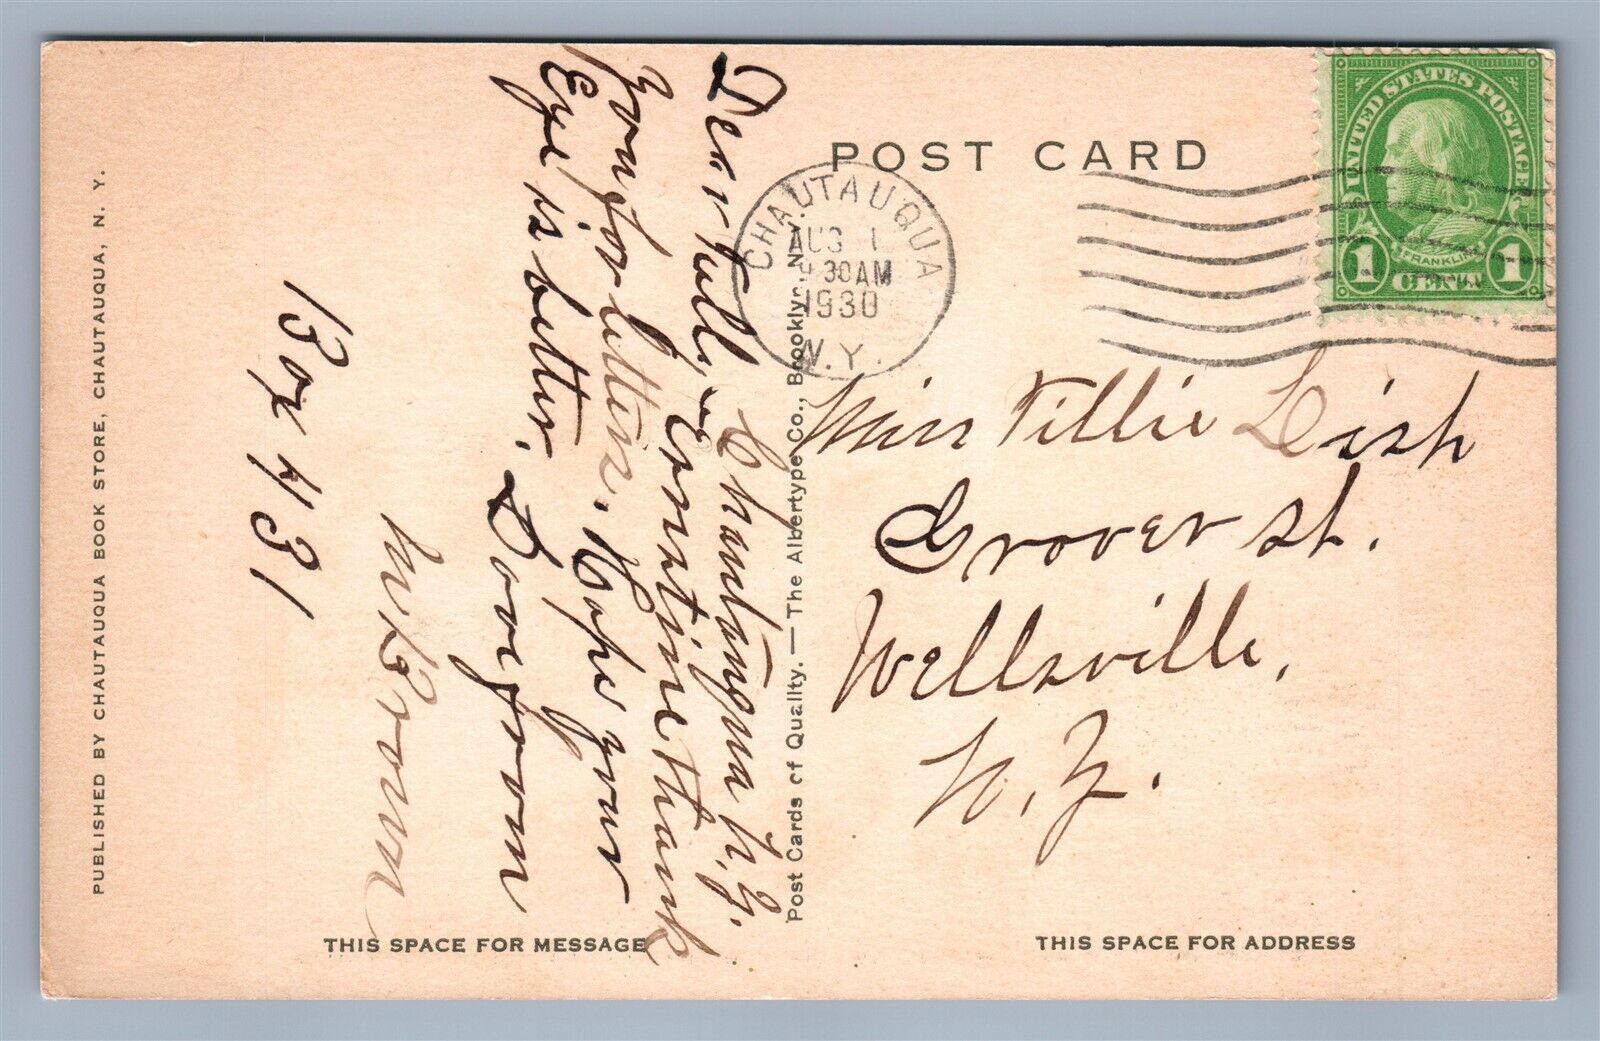 POST CARD
UNITED STATES POSTAGE
FRANKLIN
1 CENT 1
CHAUTAUQUA
N.Y.
AUG 1
30 AM
1930
Chautauqua N. Y.
Dear
Just time thank
you for letters. Hope your
Eye is better.
Love from
Brown
Box 431
Miss Tillie Dish
Grover St.
Wellsville,
N. Y.
PUBLISHED BY CHAUTAUQUA BOOK STORE, CHAUTAUQUA, N. Y.
Post Cards of Quality. — The Albertype Co., Brooklyn, N. Y.
THIS SPACE FOR MESSAGE
THIS SPACE FOR ADDRESS